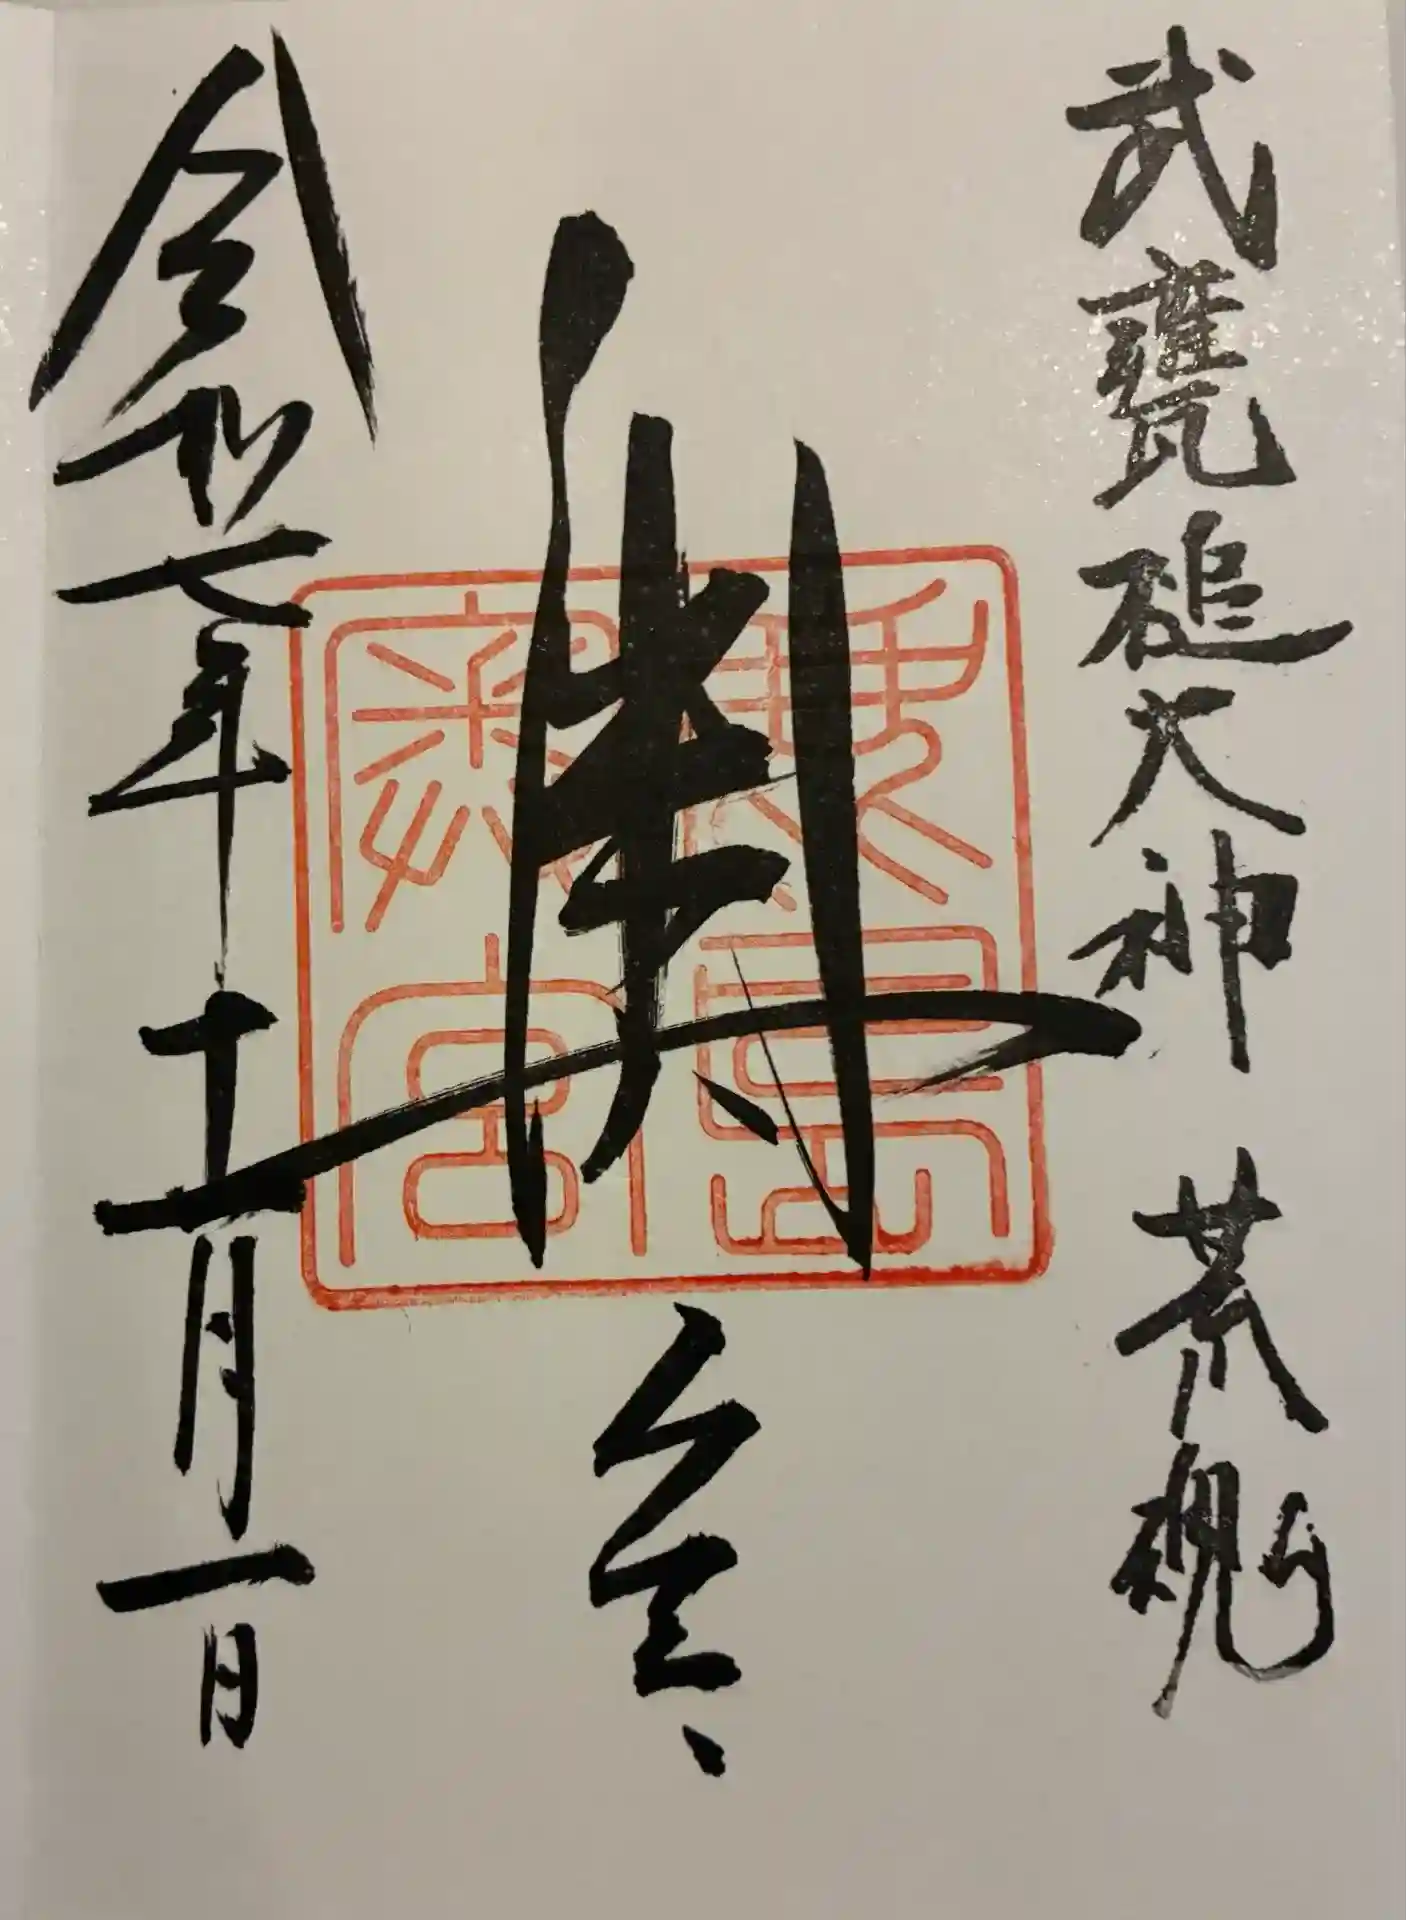 武甕槌大神 荒魂
奥宮
令和七年十一月一日
鹿島
奥宮